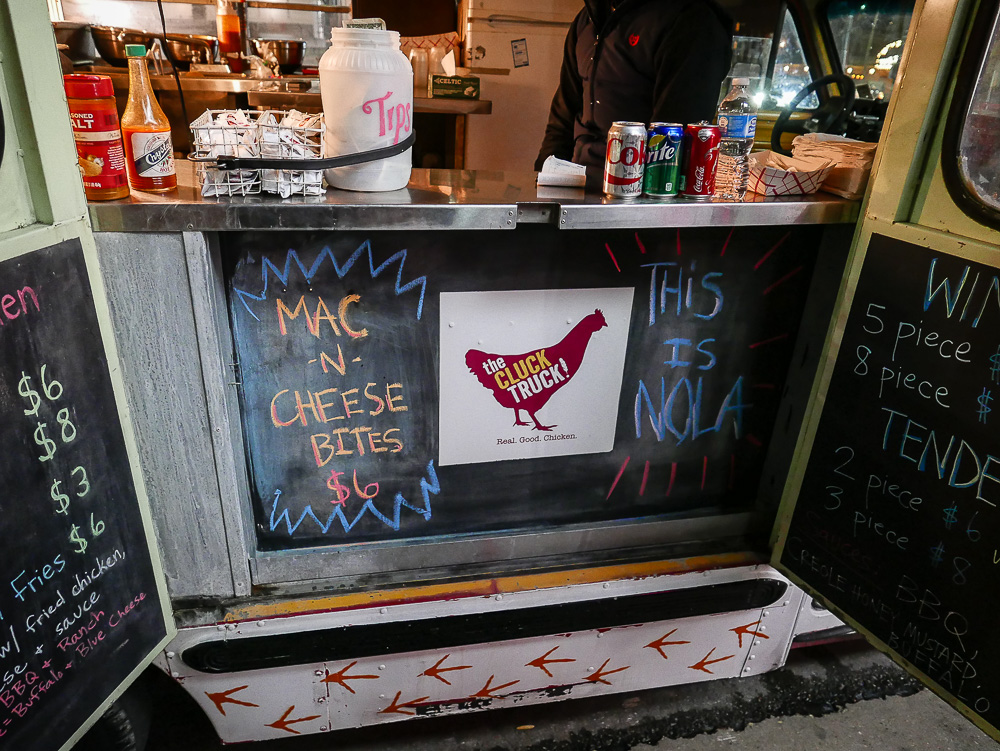 SONED
ALT
Crystal
Tips
CELTIC
Coke
rite
Coca-Cola
en
$6
$8
$3
$6
Fries
w/ fried chicken,
se + sauce
BBQ + Ranch
= Buffalo + Blue Cheese
MAC
-N-
CHEESE
BITES
$6
the
CLUCK
TRUCK!
Real. Good. Chicken.
THiS
IS
NOLA
WIN
5 piece $
8 piece $
TENDE
2 piece $6
3 piece $8
Sauces: BBQ,
CREOLE HONEY MUSTARD,
BUFFALO